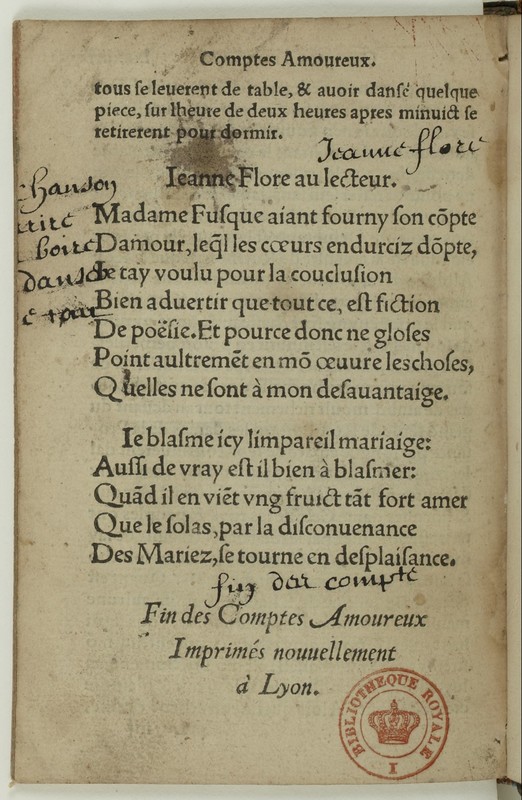 Comptes Amoureux.
tous ſe leuerent de table, & auoir danſé quelque
piece, ſur lheure de deux heures apres minuict ſe
retirerent pour dormir.
Jeanne flore
Ieanne Flore au lecteur.
chanson
rire
boire
danse
Madame Fuſque aiant fourny ſon cõpte
Damour, leq̃l les cœurs endurciz dõpte,
Ie tay voulu pour la coucluſion
Bien aduertir que tout ce, eſt fiction
De poëſie. Et pource donc ne gloſes
Point aultremẽt en mõ œuure les choſes,
Quelles ne ſont à mon deſauantaige.
Ie blaſme icy limpareil mariaige:
Auſſi de vray eſt il bien à blaſmer:
Quãd il en viẽt vng fruict tãt fort amer
Que le ſolas, par la diſconuenance
Des Mariez, ſe tourne en deſplaiſance.
compte
Fin des Comptes Amoureux
Imprimés nouuellement
à Lyon.
BIBLIOTHEQUE ROYALE
I